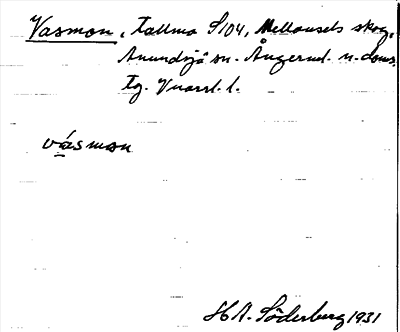 Vasmon, tallmo S104, Mellansels skog,
Anundsjö sn. Ångerml. n. doms.
tg. Vnorrl. l.
våsmon
H A. Söderberg 1931